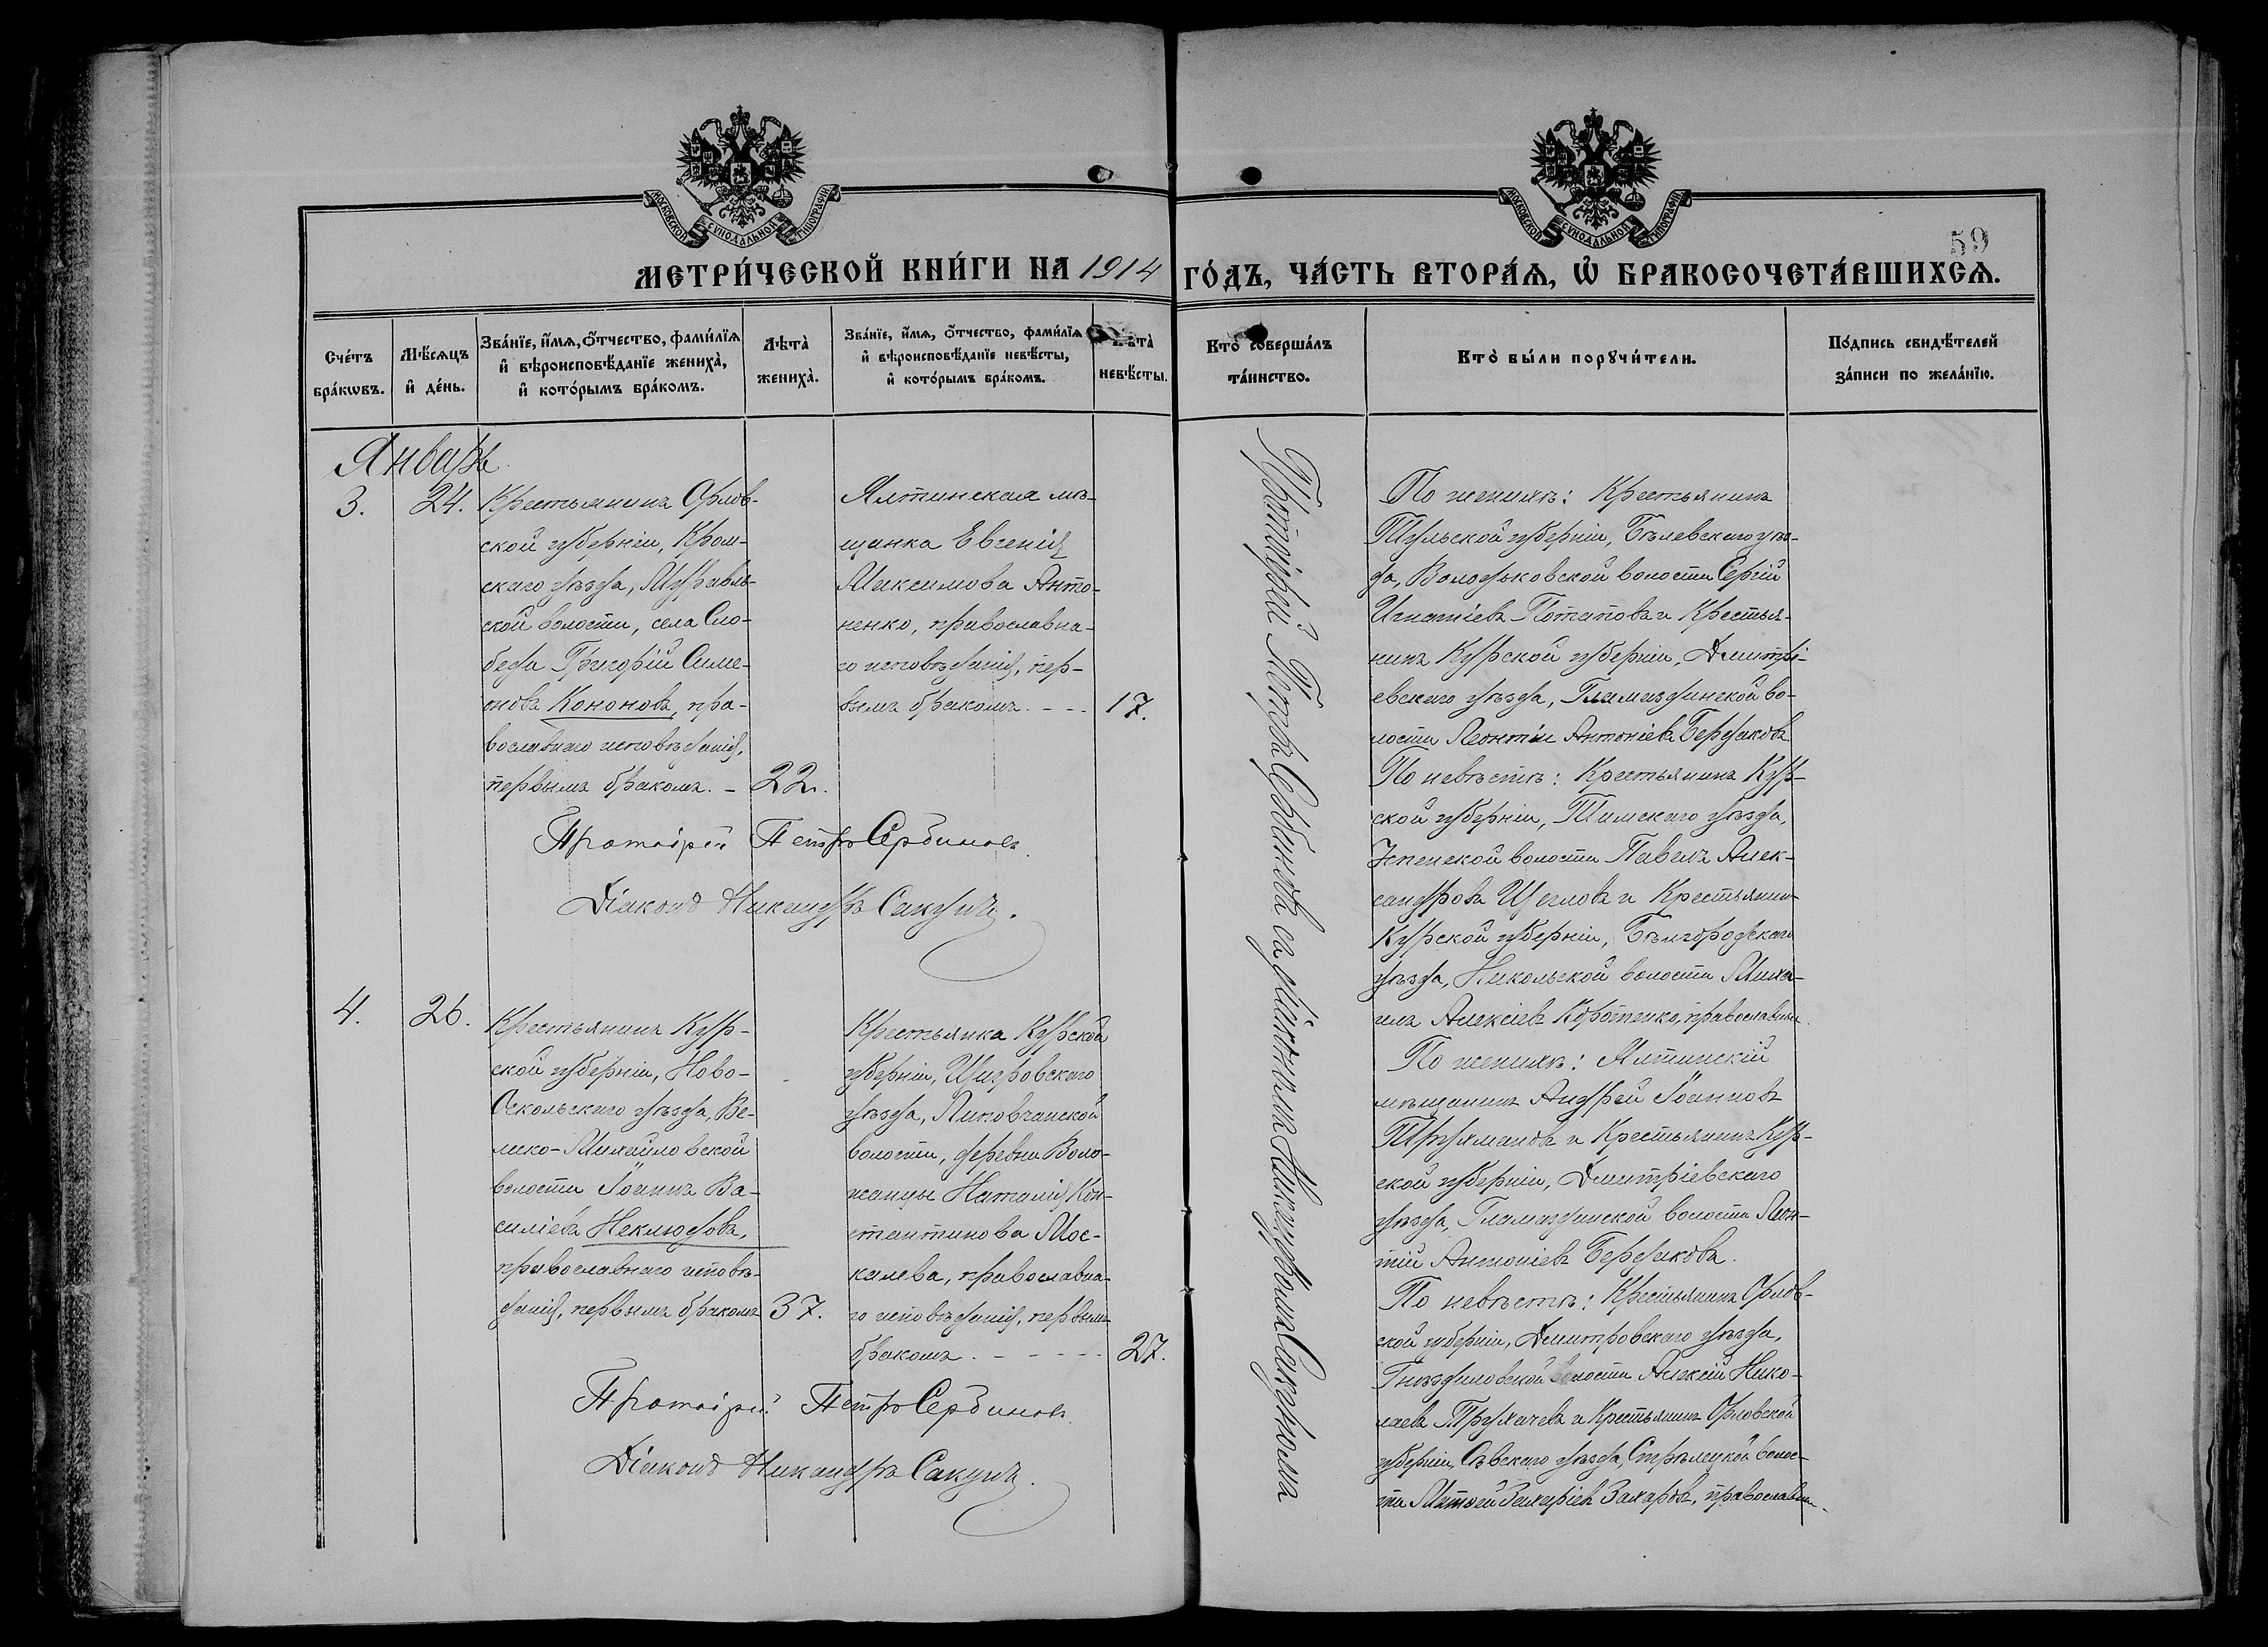 МОСКОВСКОЙ СѴНОДАЛЬНОЙ ТИПОГРАФІИ
МОСКОВСКОЙ СѴНОДАЛЬНОЙ ТИПОГРАФІИ
59
МЕТРИ́ЧЕСКОЙ КНИ́ГИ НА 1914 ГО́ДЪ, ЧА́СТЬ ВТОРА́Ѧ, Ѡ҆ БРАКОСОЧЕТА́ВШИХСѦ.
Сче́тъ
бра́кѡвъ.
Мѣ́сѧцъ
и҆ де́нь.
Зва́нїе, и҆́мѧ, ѻ҆́тчество, фами́лїѧ
и҆ вѣроисповѣ́данїе жениха̀,
и҆ кото́рымъ бра́комъ.
Лѣта̀
жениха̀.
Зва́нїе, и҆́мѧ, ѻ҆́тчество, фами́лїѧ
и҆ вѣроисповѣ́данїе невѣ́сты,
и҆ кото́рымъ бра́комъ.
Лѣта̀
невѣ́сты.
Кто̀ соверша́лъ
та́инство.
Кто̀ бы́ли порꙋчи́тели.
По́дпись свидѣ́телей
за́писи по жела́нїю.
Январь.
3.
24.
Крестьянинъ Орлов-
ской губерніи, Кром-
скаго уѣзда, Муравль-
ской волости, села Сло-
беды Григорій Симе-
оновъ Кононовъ, пра-
вославнаго исповѣданія,
первымъ бракомъ. –
22.
Ялтинская мѣ-
щанка Евгенія
Максимова Анто-
ненко, православна-
го исповѣданія, пер-
вымъ бракомъ. - - -
17.
Протоіерей Петръ Сербиновъ.
Діаконъ Никандръ Сакунъ.
Протоіерей Петръ Сербиновъ съ діакономъ Никандромъ Сакуномъ
По женихѣ: Крестьянинъ
Тульской губерніи, Бѣлевскаго уѣз-
да, Володьковской волости Сергій
Игнатіевъ Потаповъ и Крестья-
нинъ Курской губерніи, Дмитрі-
евскаго уѣзда, Гламаздинской во-
лости Леонтій Антоніевъ Бердаковъ
По невѣстѣ: Крестьянинъ Кур-
ской губерніи, Тимскаго уѣзда,
Успенской волости Павелъ Алек-
сандровъ Щегловъ и Крестьянинъ
Курской губерніи, Бѣлгородскаго
уѣзда, Никольской волости Миха-
илъ Алексіевъ Коротенко, православные.
4.
26.
Крестьянинъ Кур-
ской губерніи, Ново-
Оскольскаго уѣзда, Ве-
лико-Михайловской
волости Іоаннъ Ва-
силіевъ Неклюдовъ,
православнаго исповѣ-
данія, первымъ бракомъ
37.
Крестьянка Курской
губерніи, Щигровскаго
уѣзда, Липовчанской
волости, деревни Воло-
жанцы Наталія Кон-
стантинова Мос-
калева, православна-
го исповѣданія, первымъ
бракомъ. - - - - -
27.
Протоіерей Петръ Сербиновъ.
Діаконъ Никандръ Сакунъ.
По женихѣ: Ялтинскій
мѣщанинъ Андрей Іоанновъ
и Крестьянинъ Кур-
ской губерніи, Дмитріевскаго
уѣзда, Гламаздинской волости Леон-
тій Антоніевъ Бердаковъ.
По невѣстѣ: Крестьянинъ Орлов-
ской губерніи, Дмитровскаго уѣзда,
Гнѣздиловской волости Алексій Нико-
лаевъ Трухачевъ и Крестьянинъ Орловской
губерніи, Сѣвскаго уѣзда, Стрѣлецкой волос-
ти Матѳей Захаріевъ Захаровъ, православные.